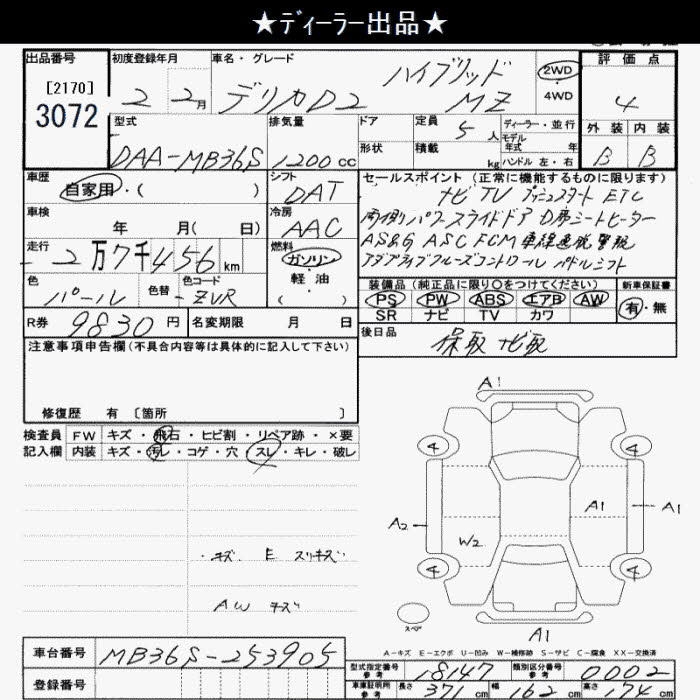 ★ディーラー出品★
出品番号
[2170]
3072
初度登録年月
2 2月
車名・グレード
デリカD2 ハイブリッド MZ
2WD
4WD
評価点
4
外装 内装
B B
型式
DAA-MB36S
排気量
1200cc
ドア
形状
定員
5人
積載
kg
ディーラー・並行
モデル年式 年
ハンドル 左・右
車歴
自家用・( )
シフト
DAT
セールスポイント(正常に機能するものに限ります)
ナビ TV プッシュスタート ETC
両側パワースライドドア D席シートヒーター
AS&G ASC FCM 車線逸脱警報
アダプティブクルーズコントロール パドルシフト
車検
年 月( 日)
冷房
AAC
走行
2万7千456km
燃料
ガソリン・
軽油
( )
色
パール
色替
色コード
ZVR
装備品(純正品に限り○をつけてください)
PS PW ABS エアB AW
SR ナビ TV カワ
新車保証書
有・無
R券
9830円
名変期限 月 日
後日品
保取 ナビ取
注意事項申告欄(不具合内容等は具体的に記入して下さい)
修復歴 有 [箇所 ]
検査員
記入欄
FW キズ・飛石・ヒビ割・リペア跡・×要
内装 キズ・汚レ・コゲ・穴・スレ・キレ・破レ
・キズ E スリキズ
AW キズ
A1
4 4
A1 A1
A2
W2
4 4
スペア
A1
A-キズ E-エクボ U-凹み W-補修跡 S-サビ C-腐食 XX-交換済
車台番号
MB36S-253905
登録番号
型式指定番号
参考
18147
類別区分番号
参考
0002
車庫証明用
参考
長さ 371cm 幅 162cm 高さ 174cm